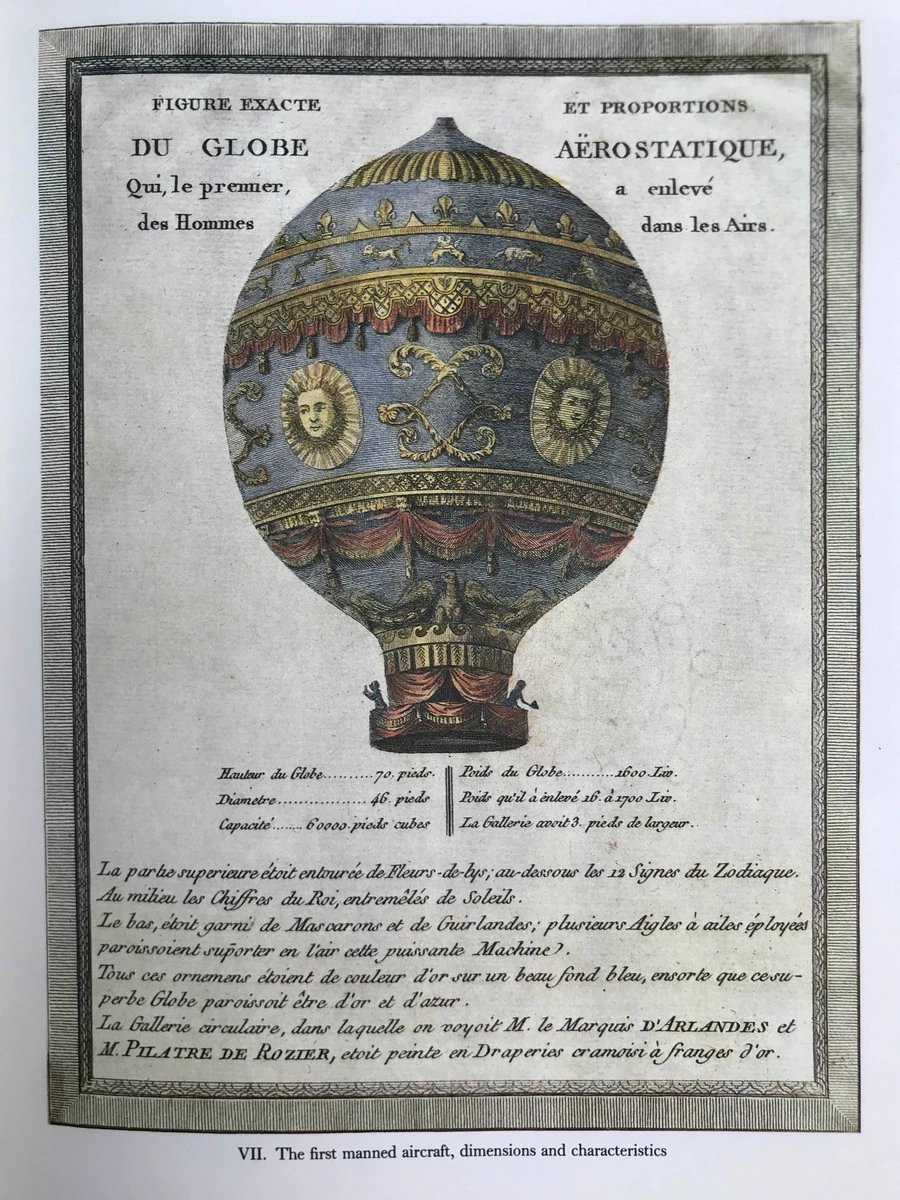 FIGURE EXACTE ET PROPORTIONS
DU GLOBE AËROSTATIQUE,
Qui, le premier, a enlevé
des Hommes dans les Airs.
Hauteur du Globe..........70. pieds.
Diametre.................. 46. pieds
Capacité....... 60000. pieds cubes
Poids du Globe...........1600. Liv.
Poids qu'il à enlevé 16. à 1700. Liv.
La Gallerie avoit 3. pieds de largeur.
La partie superieure étoit entourée de Fleurs-de-lys; au-dessous les 12 Signes du Zodiaque.
Au milieu les Chiffres du Roi, entremêlés de Soleils.
Le bas, étoit garni de Mascarons et de Guirlandes; plusieurs Aigles à ailes éployées
paroissoient suporter en l'air cette puissante Machine.
Tous ces ornemens étoient de couleur d'or sur un beau fond bleu, ensorte que ce su-
perbe Globe paroissoit être d'or et d'azur.
La Gallerie circulaire, dans laquelle on voyoit M. le Marquis D'ARLANDES et
M. PILATRE DE ROZIER, etoit peinte en Draperies cramoisi à franges d'or.
VII. The first manned aircraft, dimensions and characteristics